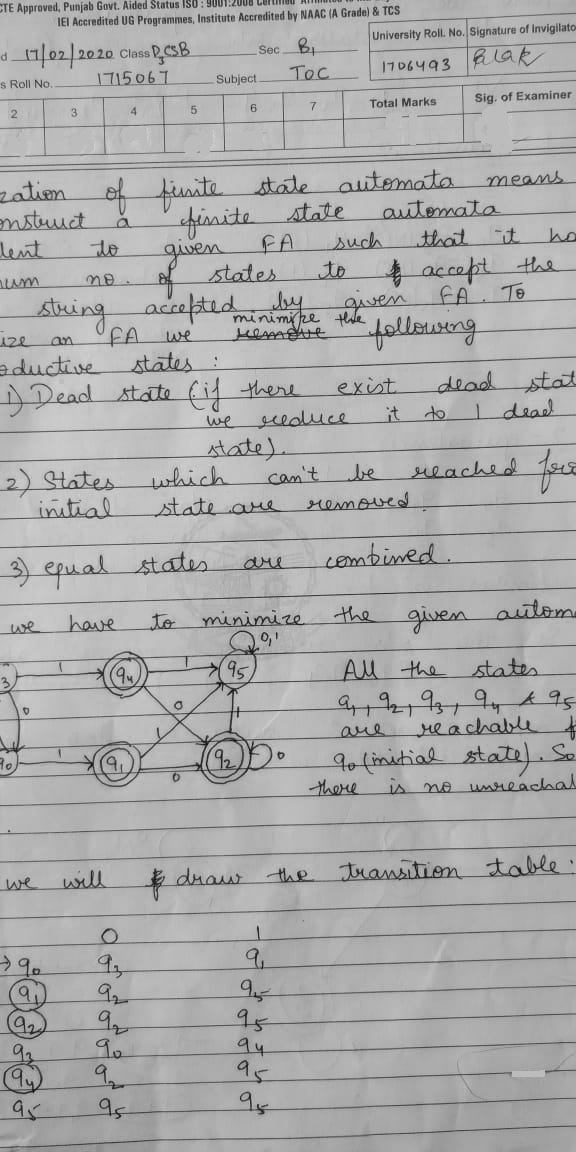 CTE Approved, Punjab Govt. Aided Status ISO : 9001:2008 Certified
IEI Accredited UG Programmes, Institute Accredited by NAAC (A Grade) & TCS
d 17/02/2020 Class D3CSB Sec B1
University Roll. No. Signature of Invigilato
1706493
s Roll No. 1715067 Subject TOC
2 3 4 5 6 7 Total Marks Sig. of Examiner
zation of finite state automata means
onstruct a finite state automata
lent to given FA such that it ha
num no. of states to accept the
string accepted by given FA. To
ize an FA we remove minimize the following
oductive states :
1) Dead state (if there exist dead stat
we reduce it to 1 dead
state).
2) States which can't be reached fro
initial state are removed.
3) equal states are combined.
we have to minimize the given autom
0,1
3 1 q4 1 q5
0 0 1 1
q0 1 q1 0 q2 0
All the states
q1, q2, q3, q4 & q5
are reachable f
q0 (initial state). So
there is no unreachal
we will draw the transition table :
0 1
→ q0 q3 q1
q1 q2 q5
q2 q2 q5
q3 q0 q4
q4 q2 q5
q5 q5 q5